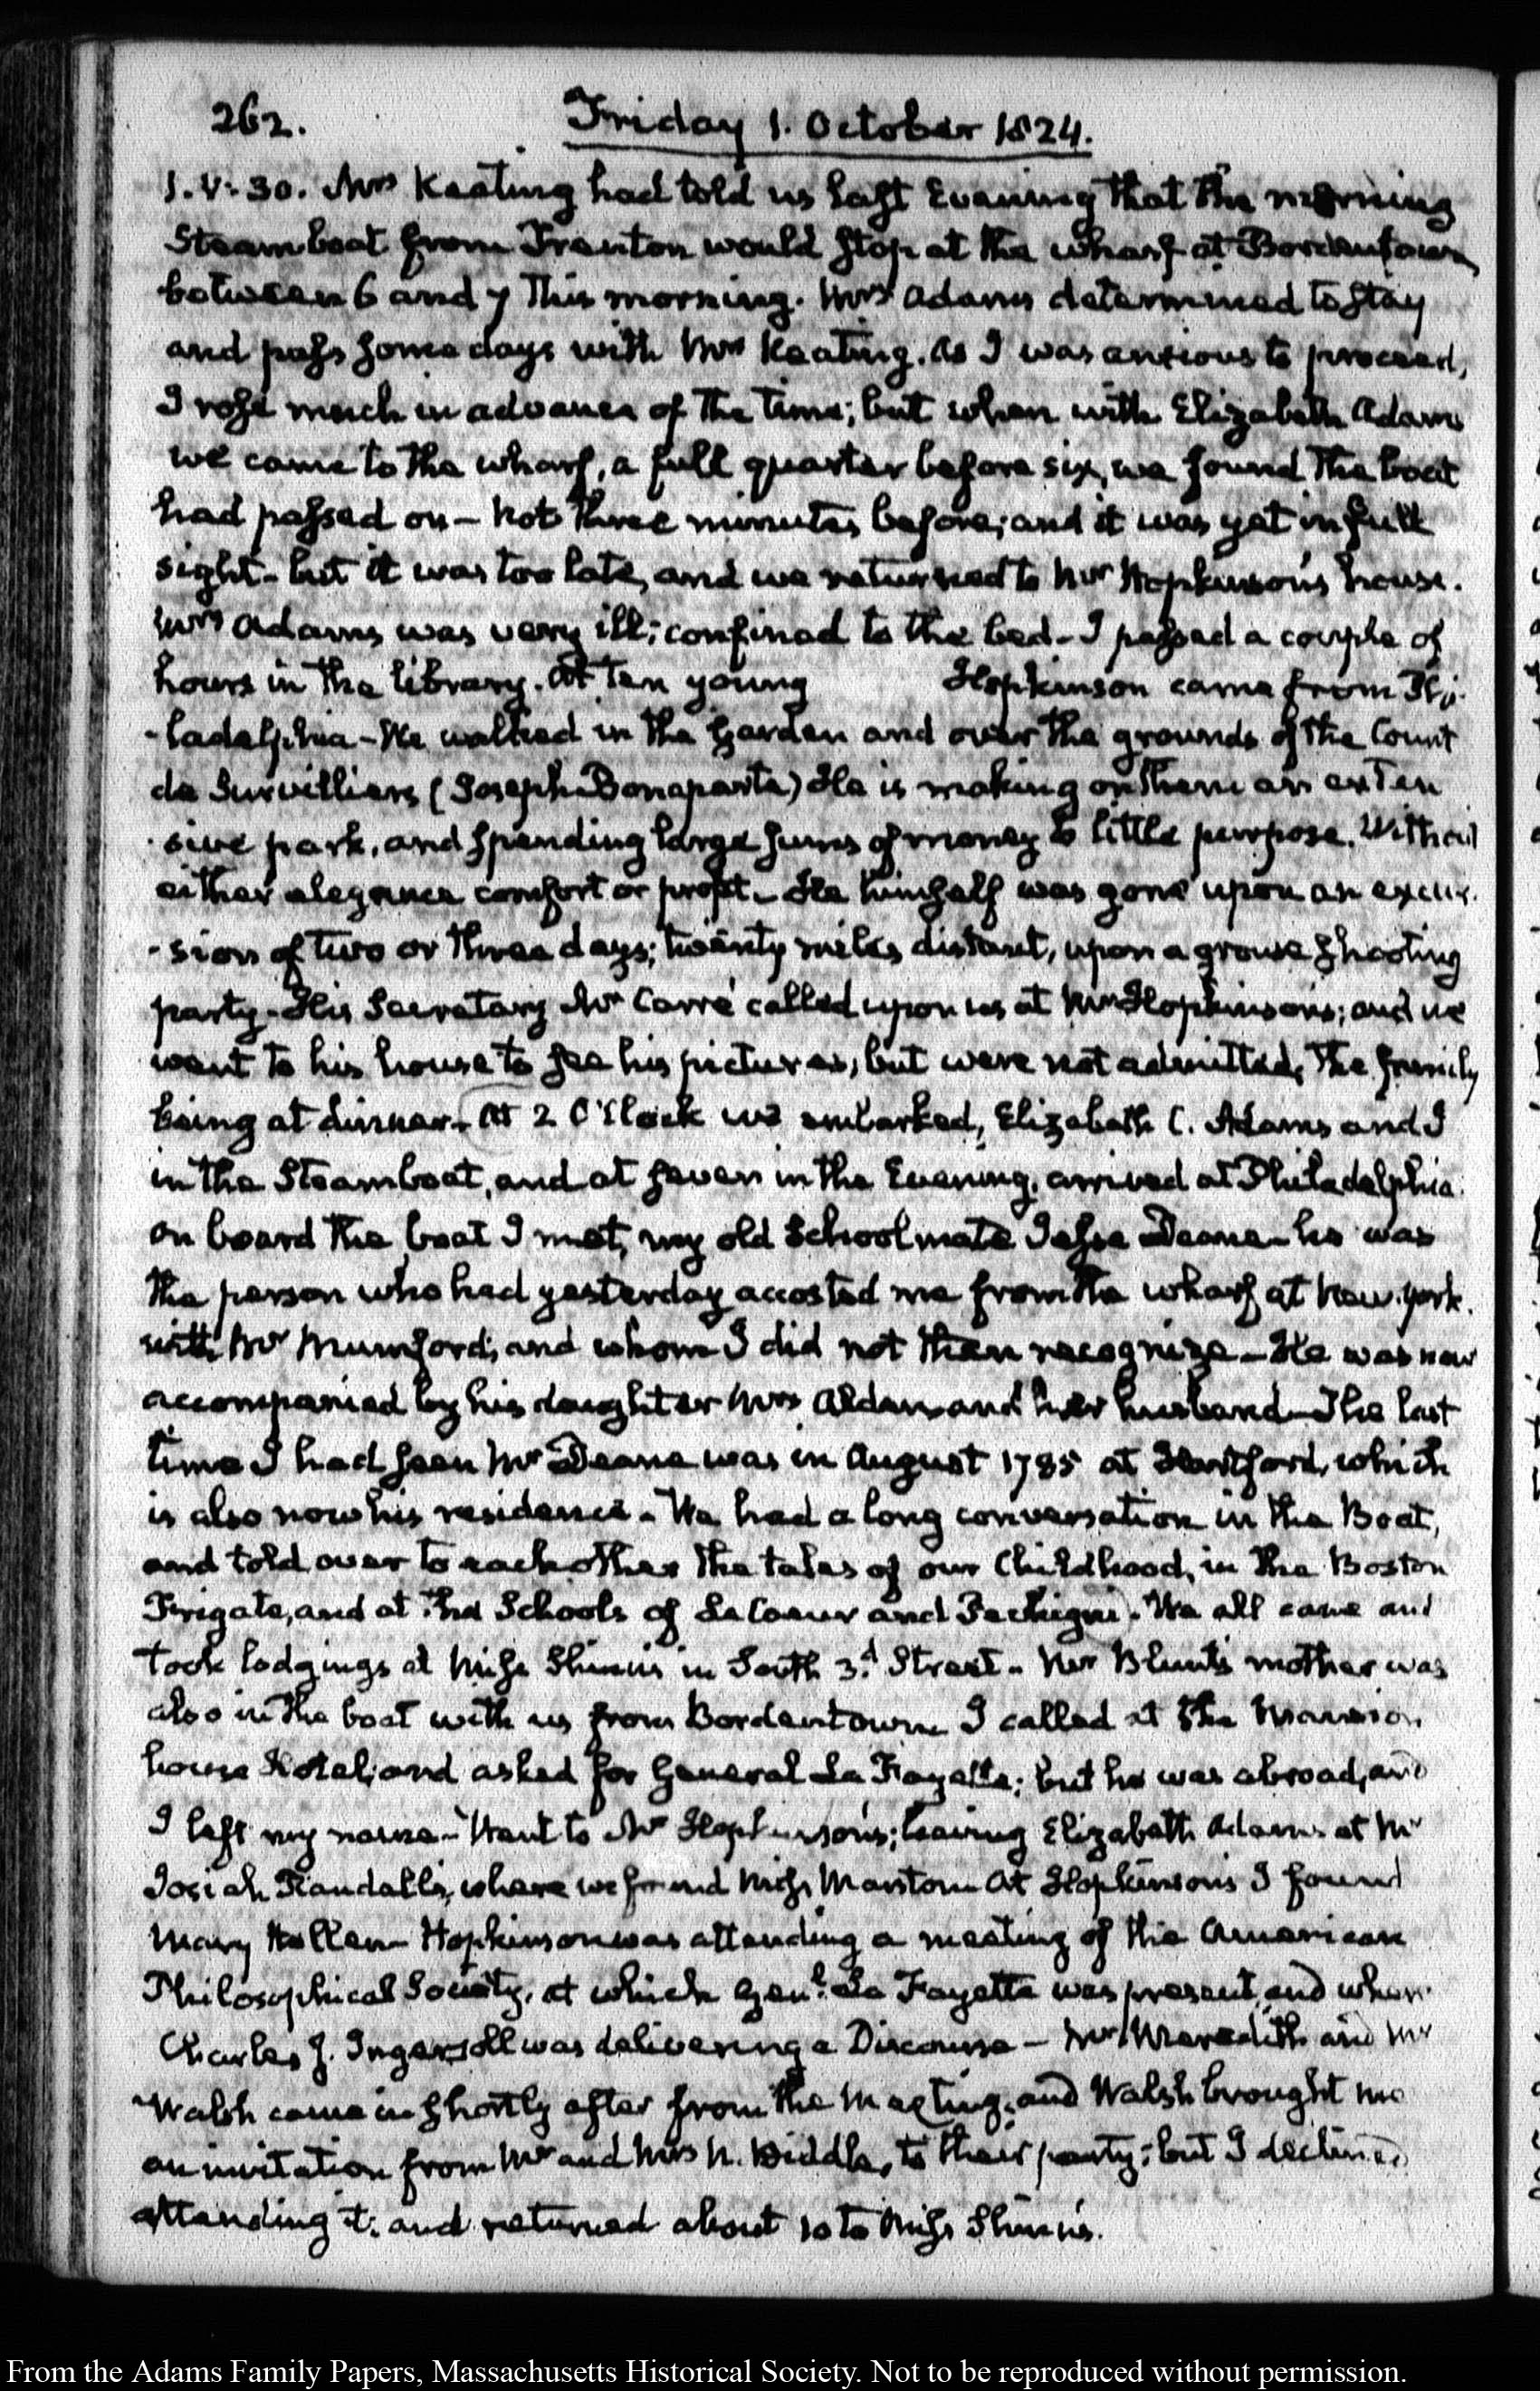 262.
Friday 1. October 1824.
1. V:30. Mrs Keating had told us last Evening that the morning
Steamboat from Trenton would stop at the wharf at Bordentown
between 6 and 7 this morning. Mrs Adams determined to stay
and pass some days with Mrs Keating. As I was anxious to proceed,
I rose much in advance of the time; but when with Elizabeth Adams
we came to the wharf, a full quarter before six, we found the boat
had passed on – not three minutes before; and it was yet in full
sight – but it was too late, and we returned to Mr Hopkinson's house.
Mrs Adams was very ill; confined to the bed – I passed a couple of
hours in the library. At ten young Hopkinson came from Phi-
-ladelphia – We walked in the Garden and over the grounds of the Count
de Survilliers (Joseph Bonaparte) He is making on them an exten
-sive park, and spending large sums of money to little purpose. Without
either elegance comfort or profit – He himself was gone upon an excur-
-sion of two or three days; twenty miles distant, upon a grouse shooting
party – His Secretary Mr Carré called upon us at Mr Hopkinson's; and we
went to his house to see his pictures, but were not admitted, the family
being at dinner – At 2 O'Clock we embarked, Elizabeth C. Adams and I
in the Steamboat, and at seven in the Evening, arrived at Philadelphia.
On board the boat I met, my old Schoolmate Jesse Deane – he was
the person who had yesterday accosted me from the wharf at New-York.
with Mr Mumford; and whom I did not then recognize – He was now
accompanied by his daughter Mrs Alden and her husband – The last
time I had seen Mr Deane was in August 1785 at Hartford, which
is also now his residence – We had a long conversation in the Boat,
and told over to each other the tales of our Childhood, in the Boston
Frigate, and at the Schools of Le Coeur and Pechigni. We all came and
took lodgings at Miss Shinn's in South 3.d Street – Mr Blunt's mother was
also in the boat with us from Bordentown I called at the Mansion
house Hotel, and asked for General La Fayette; but he was abroad, and
I left my name – Went to Mr Hopkinson's; leaving Elizabeth Adams at Mr
Josiah Randall's, where we found Miss Marston. At Hopkinson's I found
Mary Hellen – Hopkinson was attending a meeting of the American
Philosophical Society, at which Genl. La Fayette was present, and where
Charles J. Ingersoll was delivering a Discourse – Mr Meredith and Mr
Walsh came in shortly after from the Meeting, and Walsh brought me
an invitation from Mr and Mrs N. Biddle, to their party; but I declined
attending it: and returned about 10 to Miss Shinn's.
From the Adams Family Papers, Massachusetts Historical Society. Not to be reproduced without permission.